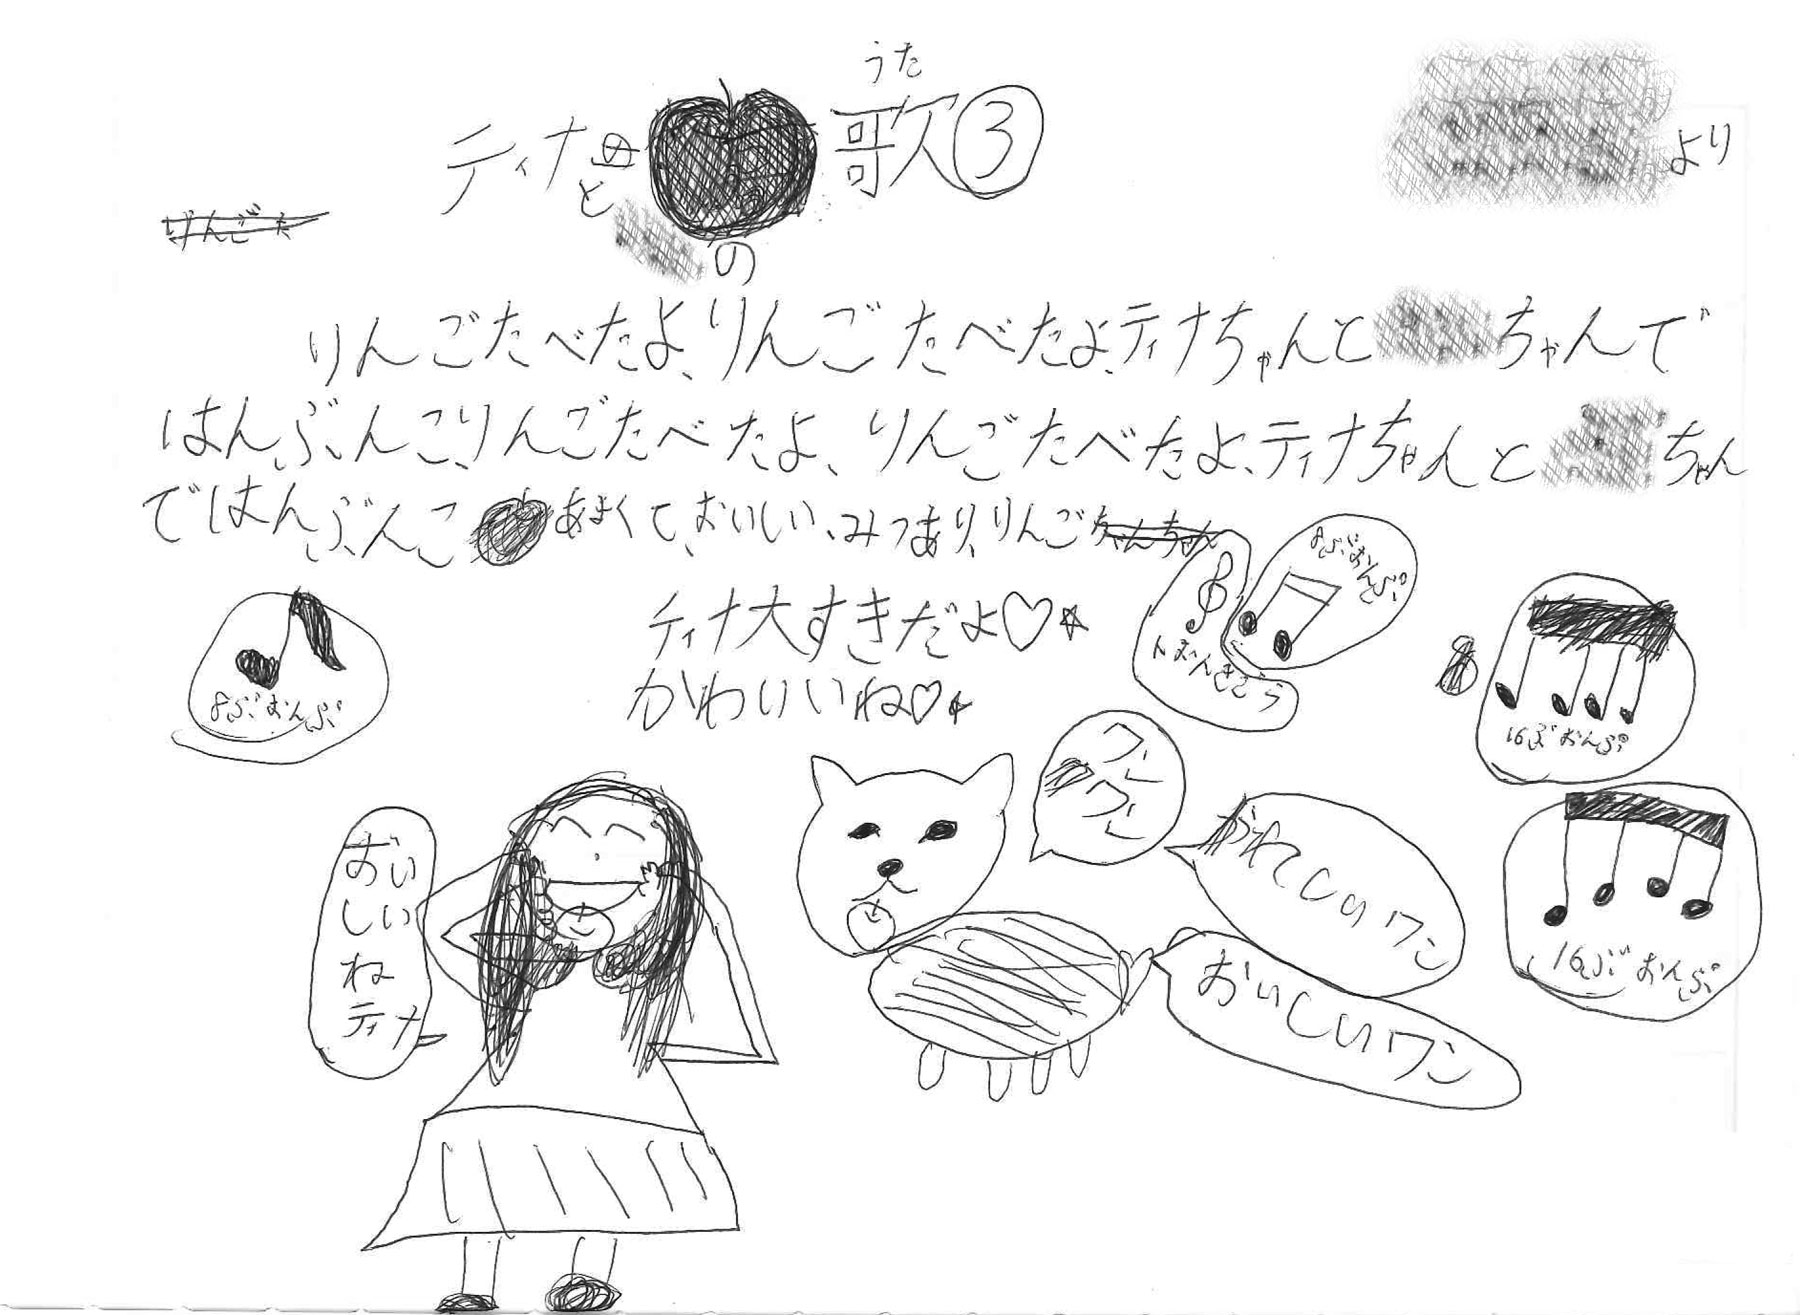 うた
ティナ母 歌③
と
の
より
りんごたべたよ、りんごたべたよ、ティナちゃんと ちゃんで
はんぶんこ、りんごたべたよ、りんごたべたよ、ティナちゃんと ちゃん
ではんぶんこ あまくて、おいしい、みつあり、りんご
ティナ大すきだよ♡☆
かわいいね♡☆
8ぶおんぷ
トおんきごう
8ぶおんぷ
16ぶおんぷ
16ぶおんぷ
おい
しい
ね
ティナ
ワン
ワン
うれしいワン
おいしいワン